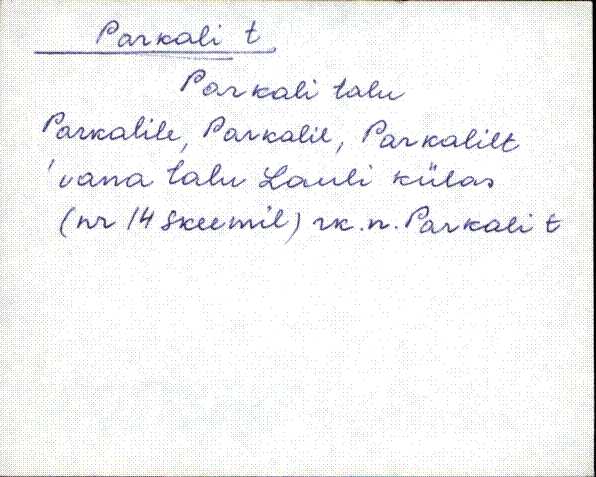 Parkali t
Parkali talu
Parkalile, Parkalil, Parkalilt
'vana talu Lauli külas
(nr 14 skeemil) rk. n. Parkali t